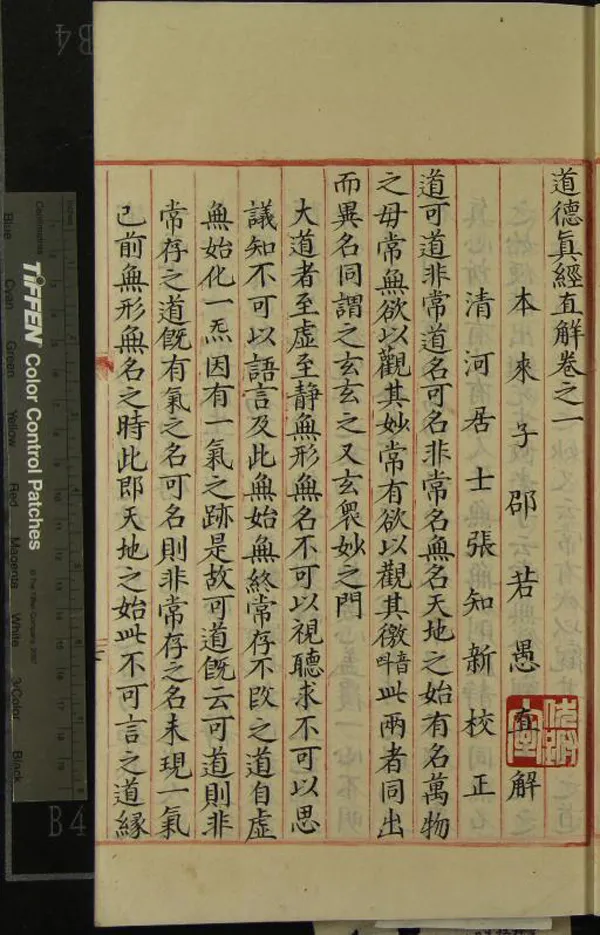 道德眞經直解卷之一
本來子邵若愚直解
清河居士張知新校正
道可道非常道名可名非常名無名天地之始有名萬物
之母常無欲以觀其妙常有欲以觀其徼音叫此兩者同出
而異名同謂之玄玄之又玄衆妙之門
大道者至虚至静無形無名不可以視聽求不可以思
議知不可以語言及此無始無終常存不改之道自虚
無始化一炁因有一氣之跡是故可道旣云可道則非
常存之道旣有氣之名可名則非常存之名未現一氣
已前無形無名之時此即天地之始此不可言之道緣
B4
B4
TIFFEN Color Control Patches
© The Tiffen Company, 2007
Centimetres
Inches
Blue
Cyan
Green
Yellow
Red
Magenta
White
3/Color
Black